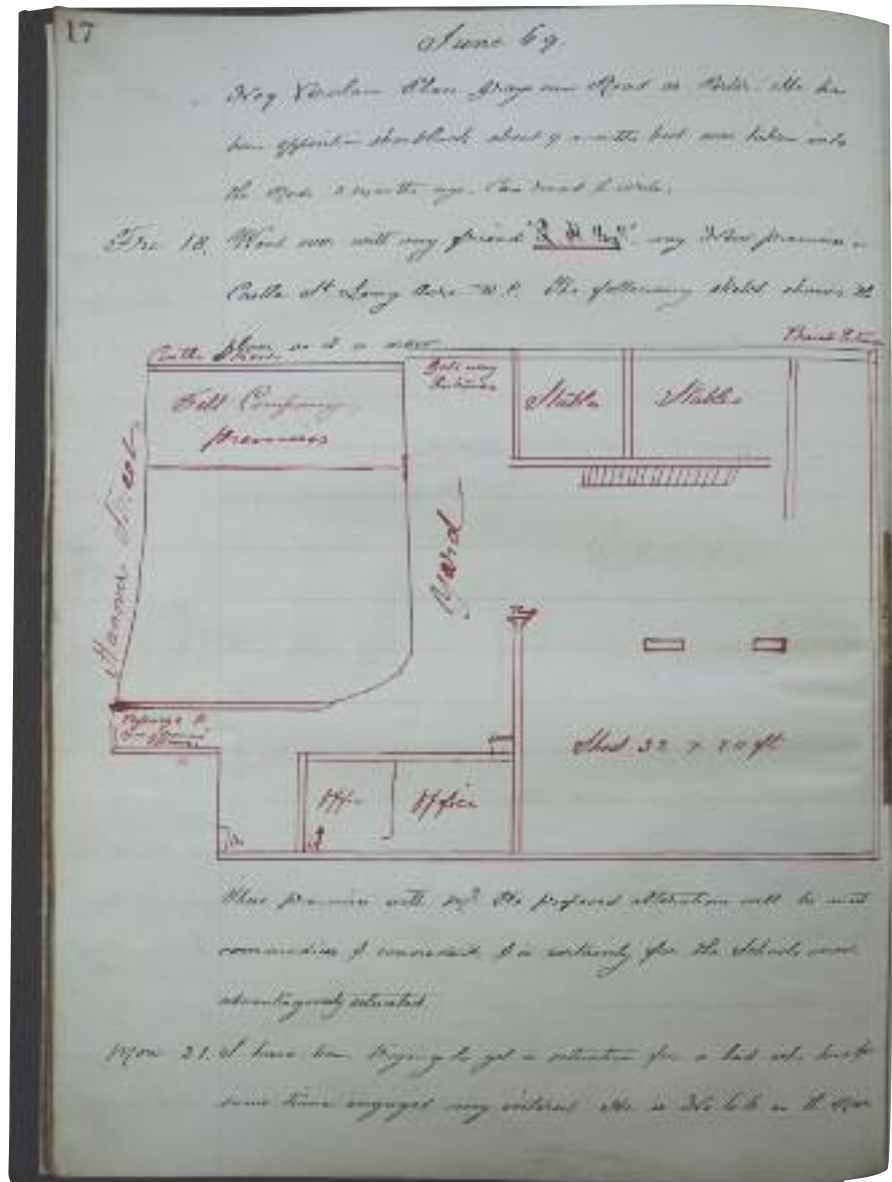 17
June 69.
Verulam Place Grays inn Road as Porter. He has
been shoeblack about 9 months but was taken into
the 2 months ago. Can read & write.
Fri 18. Went over with my friend my New premises in
Castle St Long Acre W.C. The following sketch shows the
plan as it is now
Castle Street
Felt Company
premises
Gate way
Entrance
Stable
Stables
Yard
Hanover Street
Passage
Shed 32 x 20 ft
Office
Office
These premises with the proposed alteration will be most
commodious & convenient & is certainly for the Schools more
advantageously situated
Mon 21. I have been trying to get a situation for a lad who has for
some time engaged my interest He is No 66 in the